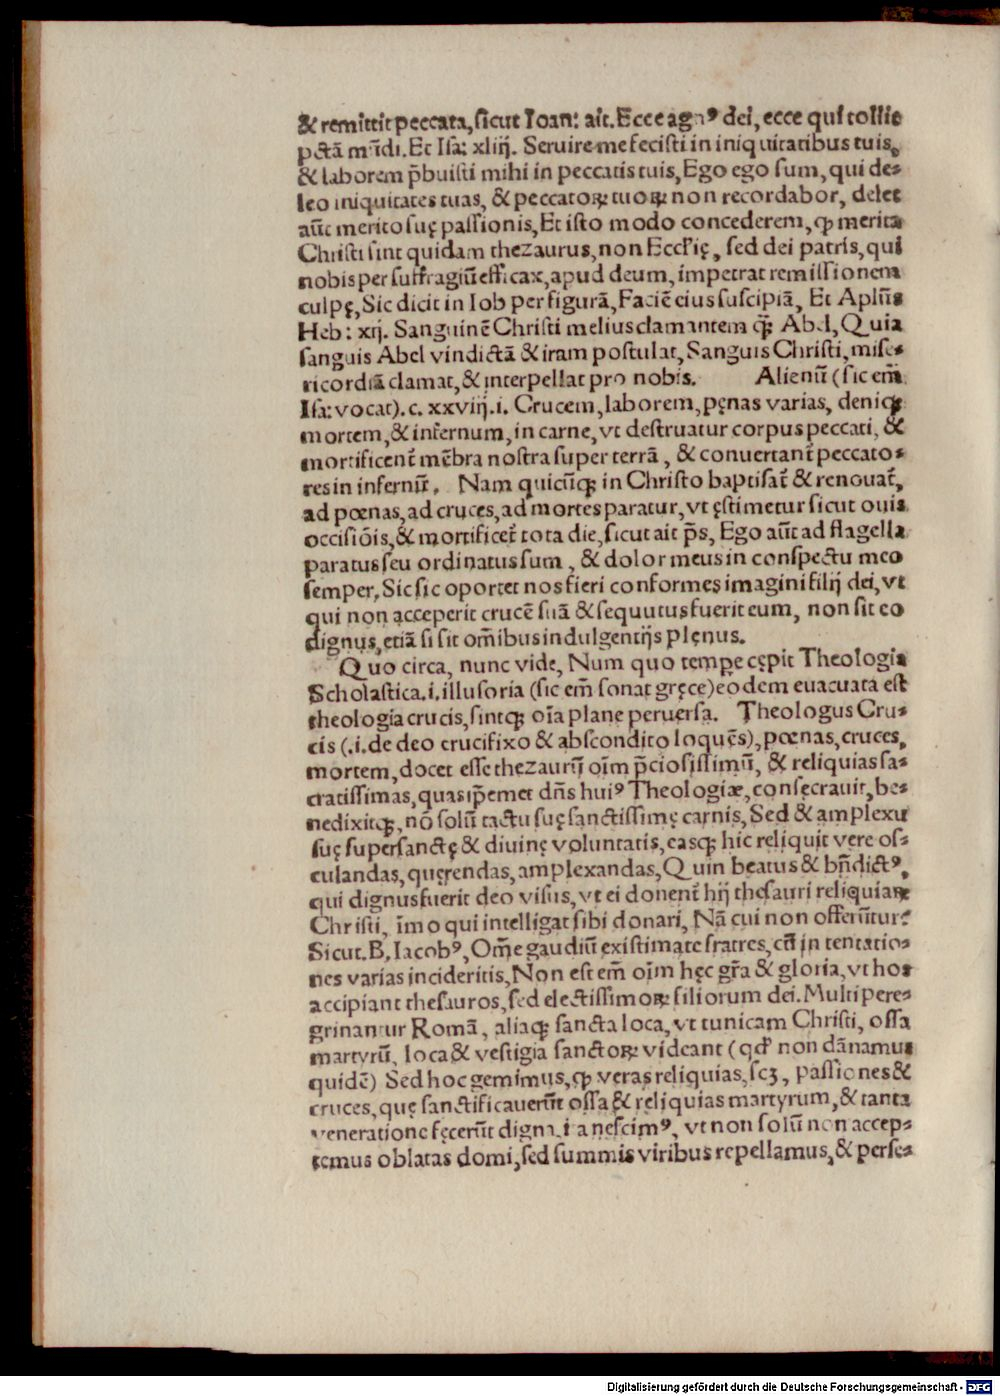 & remittit peccata, ſicut Ioan: ait. Ecce agnꝰ dei, ecce qui tollit
pctā mūdi. Et Iſa: xliij. Seruire me feciſti in iniquitatibus tuis,
& laborem p̄buiſti mihi in peccatis tuis, Ego ego ſum, qui de⸗
leo iniquitates tuas, & peccatoꝝ tuoꝝ non recordabor, delet
aūt merito ſuę paſſionis, Et iſto modo concederem, ꝙ merita
Chriſti ſint quidam thezaurus, non Eccl'ię, ſed dei patris, qui
nobis per ſuffragiū efficax, apud deum, impetrat remiſſionem
culpę, Sic dicit in Iob per figurā, Faciē eius ſuſcipiā, Et Apl'us
Heb: xij. Sanguinē Chriſti melius clamantem ꝙ̄ Abel, Quia
ſanguis Abel vindictā & iram poſtulat, Sanguis Chriſti, miſe⸗
ricordiā clamat, & interpellat pro nobis. Alienū (ſic em̄
Iſa: vocat). c. xxviij. i. Crucem, laborem, pęnas varias, deniqꝫ
mortem, & infernum, in carne, vt deſtruatur corpus peccati, &
mortificent᷑ mēbra noſtra ſuper terrā, & conuertant᷑ peccato⸗
res in infernū. Nam quicūqꝫ in Chriſto baptiſat᷑ & renouat᷑,
ad pœnas, ad cruces, ad mortes paratur, vt ęſtimetur ſicut ouis
occiſiōis, & mortificet᷑ tota die, ſicut ait p̄s, Ego aūt ad flagella
paratus ſeu ordinatus ſum, & dolor meus in conſpectu meo
ſemper, Sic ſic oportet nos fieri conformes imagini filij dei, vt
qui non acceperit crucē ſuā & ſequutus fuerit eum, non ſit eo
dignus, etiā ſi ſit om̄ibus indulgentijs plęnus.
Quo circa, nunc vide, Num quo tempe cępit Theologia
Scholaſtica. i. illuſoria (ſic em̄ ſonat gręce) eodem euacuata eſt
theologia crucis, ſintqꝫ oīa plane peruerſa. Theologus Cru⸗
cis (. i. de deo crucifixo & abſcondito loquēs), pœnas, cruces,
mortem, docet eſſe thezaurū oīm p̄cioſiſſimū, & reliquias ſa⸗
cratiſſimas, quas ip̄emet dn̄s huiꝰ Theologiæ, conſęcrauit, be⸗
nedixitqꝫ, nō ſolū tactu ſuę ſanctiſſimę carnis, Sed & amplexu
ſuę ſuperſanctę & diuinę voluntatis, easqꝫ hic reliquit vere oſ⸗
culandas, quęrendas, amplexandas, Quin beatus & bn̄dictꝰ,
qui dignus fuerit deo viſus, vt ei donent᷑ hij theſauri reliquiaꝝ
Chriſti, īmo qui intelligat ſibi donari, Nā cui non offerūtur?
Sicut. B. Iacobꝰ, Om̄e gaudiū exiſtimate fratres, cū in tentatio⸗
nes varias incideritis, Non eſt em̄ oīm hęc gr̄a & gloria, vt hos
accipiant theſauros, ſed electiſſimoꝝ filiorum dei. Multi pere⸗
grinantur Romā, aliaqꝫ ſancta loca, vt tunicam Chriſti, oſſa
martyrū, loca & veſtigia ſanctoꝝ videant (qd' non dānamus
quidē) Sed hoc gemimus, ꝙ veras reliquias, ſcꝫ, paſſiones &
cruces, quę ſanctificauerūt oſſa & reliquias martyrum, & tanta
veneratione fęcerūt digna ita neſcimꝰ, vt non ſolū non accep⸗
temus oblatas domi, ſed ſummis viribus repellamus, & perſe⸗
Digitalisierung gefördert durch die Deutsche Forschungsgemeinschaft - DFG